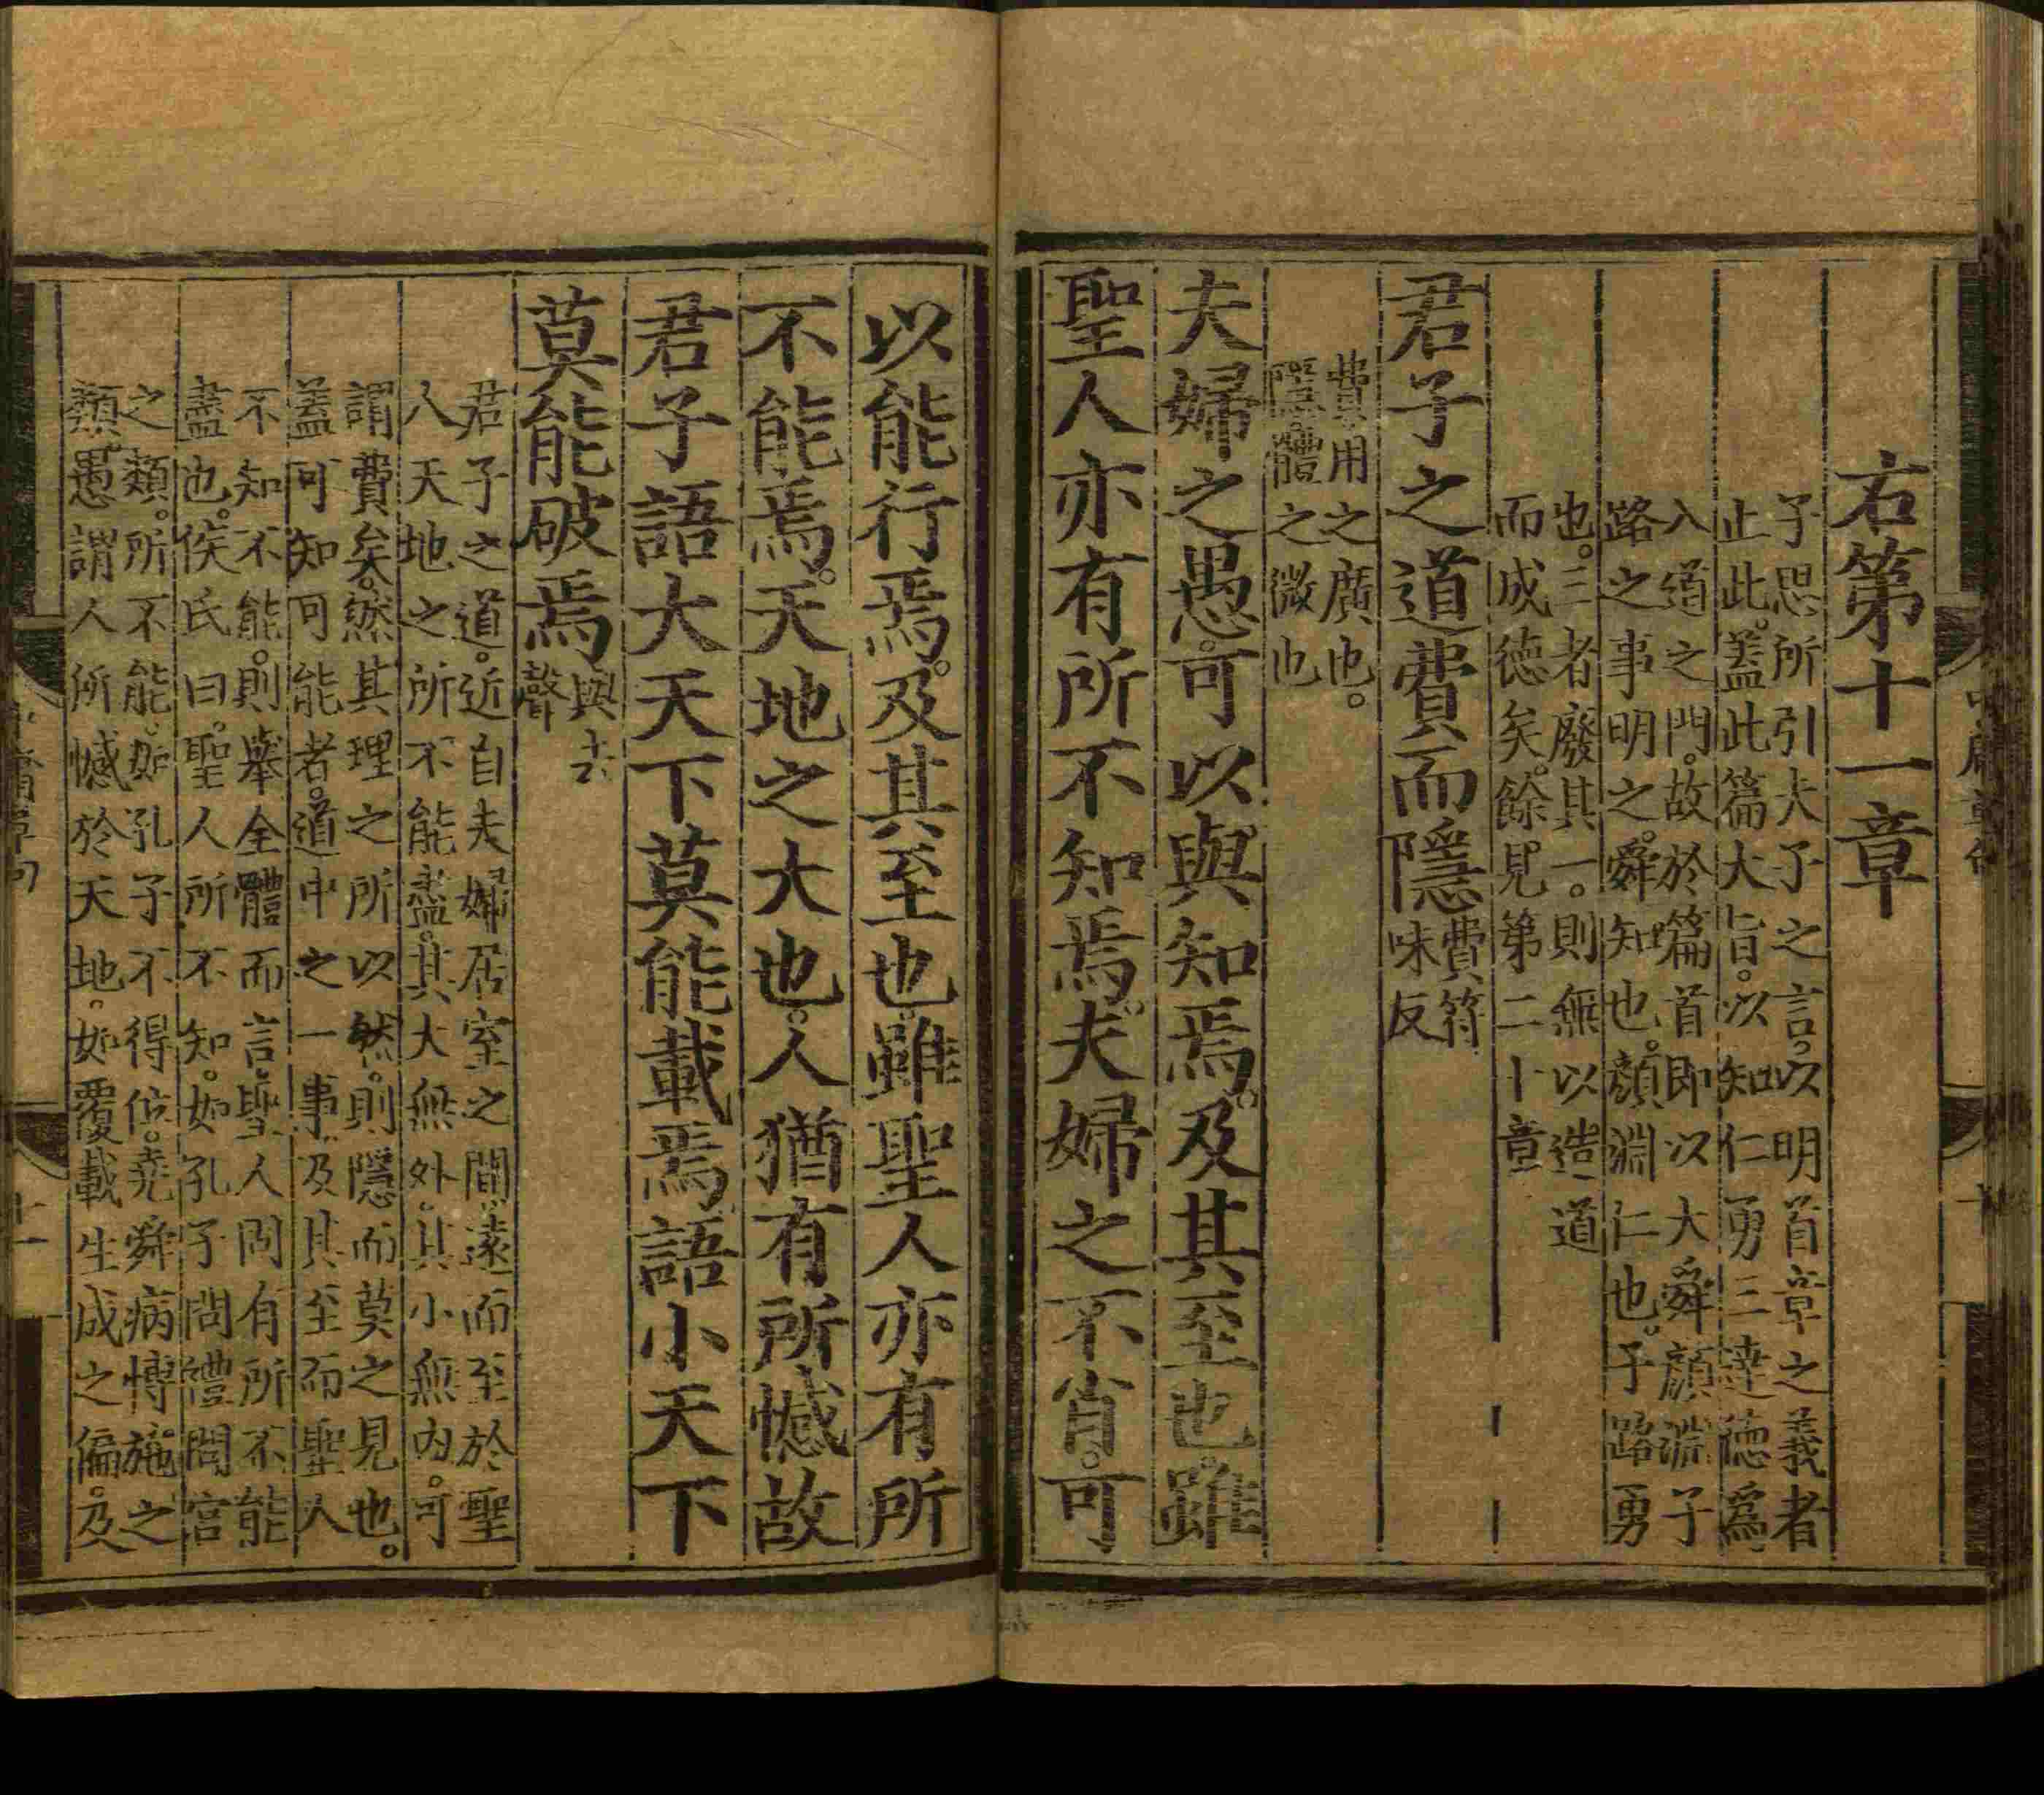 右第十一章
子思所引夫子之言。以明首章之義者
止此。蓋此篇大旨。以知仁勇三達德爲
入道之門。故於篇首即以大舜顏淵子
路之事明之。舜知也。顏淵仁也。子路勇
也。三者廢其一。則無以造道
而成德矣。餘見第二十章
君子之道費而隱
費符
味反
費用之廣也。
隱。體之微也
夫婦之愚。可以與知焉。及其至也。雖
聖人亦有所不知焉。夫婦之不肖。可
以能行焉。及其至也。雖聖人亦有所
不能焉。天地之大也。人猶有所憾故
君子語大天下莫能載焉語小天下
莫能破焉
與去
聲
君子之道。近自夫婦居室之間。遠而至於聖
人天地之所不能盡。其大無外。其小無內。可
謂費矣。然其理之所以然。則隱而莫之見也。
蓋可知可能者。道中之一事。及其至而聖人
不知不能。則舉全體而言。聖人固有所不能
盡也。侯氏曰。聖人所不知。如孔子問禮問官
之類。所不能。如孔子不得位。堯舜病博施之
類。愚謂人所憾於天地。如覆載生成之偏。及